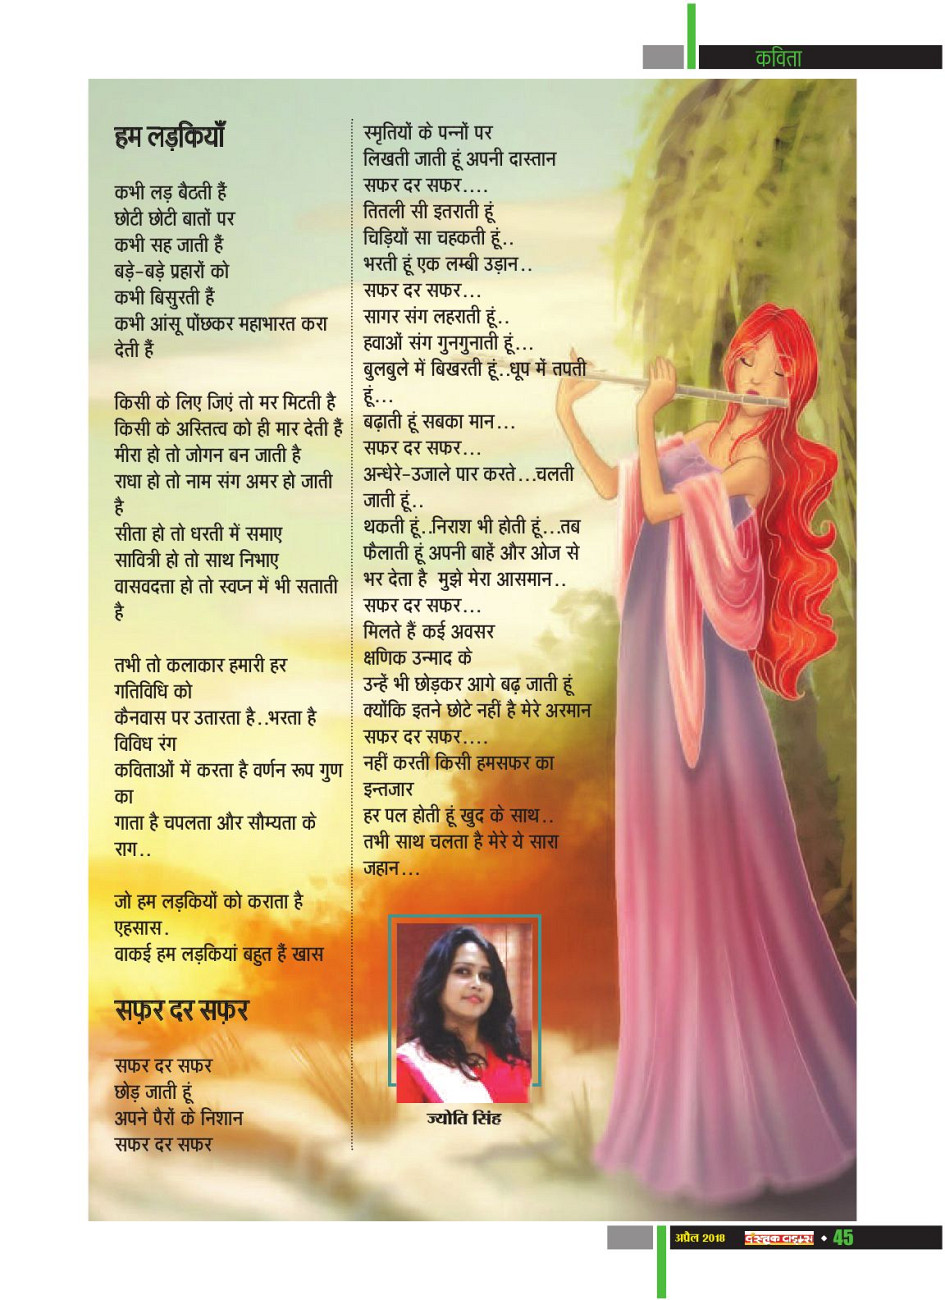 कविता
हम लड़कियाँ
कभी लड़ बैठती हैं
छोटी छोटी बातों पर
कभी सह जाती हैं
बड़े-बड़े प्रहारों को
कभी बिसुरती हैं
कभी आंसू पोंछकर महाभारत करा
देती हैं
किसी के लिए जिएं तो मर मिटती है
किसी के अस्तित्व को ही मार देती हैं
मीरा हो तो जोगन बन जाती है
राधा हो तो नाम संग अमर हो जाती
है
सीता हो तो धरती में समाए
सावित्री हो तो साथ निभाए
वासवदत्ता हो तो स्वप्न में भी सताती
है
तभी तो कलाकार हमारी हर
गतिविधि को
कैनवास पर उतारता है..भरता है
विविध रंग
कविताओं में करता है वर्णन रूप गुण
का
गाता है चपलता और सौम्यता के
राग..
जो हम लड़कियों को कराता है
एहसास.
वाकई हम लड़कियां बहुत हैं खास
सफ़र दर सफ़र
सफर दर सफर
छोड़ जाती हूं
अपने पैरों के निशान
सफर दर सफर
स्मृतियों के पन्नों पर
लिखती जाती हूं अपनी दास्तान
सफर दर सफर....
तितली सी इतराती हूं
चिड़ियों सा चहकती हूं..
भरती हूं एक लम्बी उड़ान..
सफर दर सफर...
सागर संग लहराती हूं..
हवाओं संग गुनगुनाती हूं...
बुलबुले में बिखरती हूं..धूप में तपती
हूं...
बढ़ाती हूं सबका मान...
सफर दर सफर...
अन्धेरे-उजाले पार करते...चलती
जाती हूं..
थकती हूं..निराश भी होती हूं...तब
फैलाती हूं अपनी बाहें और ओज से
भर देता है मुझे मेरा आसमान..
सफर दर सफर...
मिलते हैं कई अवसर
क्षणिक उन्माद के
उन्हें भी छोड़कर आगे बढ़ जाती हूं
क्योंकि इतने छोटे नहीं है मेरे अरमान
सफर दर सफर....
नहीं करती किसी हमसफर का
इन्तजार
हर पल होती हूं खुद के साथ..
तभी साथ चलता है मेरे ये सारा
जहान...
ज्योति सिंह
अप्रैल 2018 दस्तक टाइम्स • 45